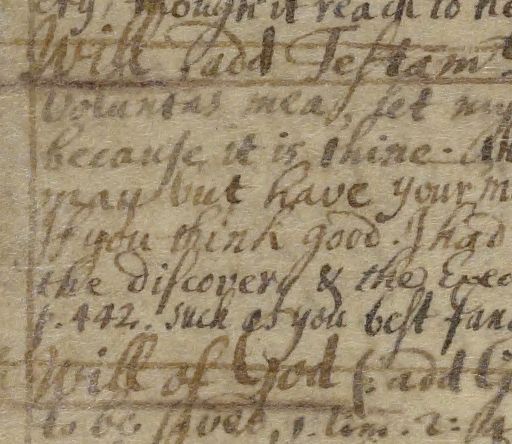 ery, though it reach to
Will (add Testam
Voluntas mea, set my
because it is thine. An
may but have your
If you think good. I had
the discovery & the Exec
p. 442. Such as you best
Will of God (: add
to be saved, 1. Tim. 2: